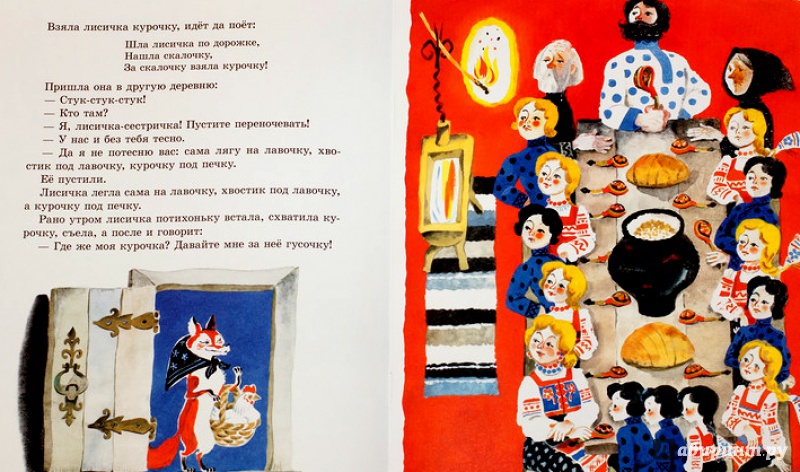 Взяла лисичка курочку, идёт да поёт:
Шла лисичка по дорожке,
Нашла скалочку,
За скалочку взяла курочку!
Пришла она в другую деревню:
— Стук-стук-стук!
— Кто там?
— Я, лисичка-сестричка! Пустите переночевать!
— У нас и без тебя тесно.
— Да я не потесню вас: сама лягу на лавочку, хво-
стик под лавочку, курочку под печку.
Её пустили.
Лисичка легла сама на лавочку, хвостик под лавочку,
а курочку под печку.
Рано утром лисичка потихоньку встала, схватила ку-
рочку, съела, а после и говорит:
— Где же моя курочка? Давайте мне за неё гусочку!
лабиринт.ру